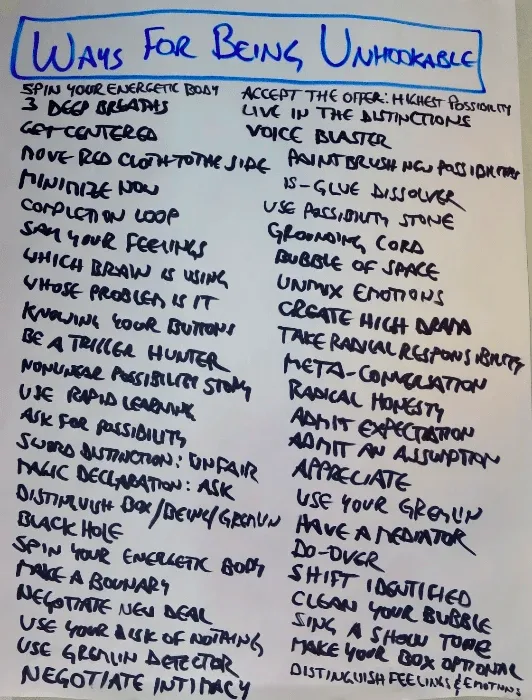 WAYS FOR BEING UNHOOKABLE
SPIN YOUR ENERGETIC BODY
3 DEEP BREATHS
GET CENTERED
MOVE RED CLOTH TO THE SIDE
MINIMIZE NOW
COMPLETION LOOP
SAY YOUR FEELINGS
WHICH BRAIN IS USING
WHOSE PROBLEM IS IT
KNOWING YOUR BUTTONS
BE A TRIGGER HUNTER
NONLINEAR POSSIBILITY STORY
USE RAPID LEARNING
ASK FOR POSSIBILITY
SWORD DISTINCTION: UNFAIR
MAGIC DECLARATION: ASK
DISTINGUISH BOX/BEING/GREMLIN
BLACK HOLE
SPIN YOUR ENERGETIC BODY
MAKE A BOUNARY
NEGOTIATE NEW DEAL
USE YOUR DISK OF NOTHING
USE GREMLIN DETECTOR
NEGOTIATE INTIMACY
ACCEPT THE OFFER: HIGHEST POSSIBILITY
LIVE IN THE DISTINCTIONS
VOICE BLASTER
PAINTBRUSH NEW POSSIBILITIES
IS-GLUE DISSOLVER
USE POSSIBILITY STONE
GROUNDING CORD
BUBBLE OF SPACE
UNMIX EMOTIONS
CREATE HIGH DRAMA
TAKE RADICAL RESPONSIBILITY
META-CONVERSATION
RADICAL HONESTY
ADMIT EXPECTATION
ADMIT AN ASSUMPTION
APPRECIATE
USE YOUR GREMLIN
HAVE A MEDIATOR
DO-OVER
SHIFT IDENTIFIED
CLEAN YOUR BUBBLE
SING A SHOW TUNE
MAKE YOUR BOX OPTIONAL
DISTINGUISH FEELINGS & EMOTIONS